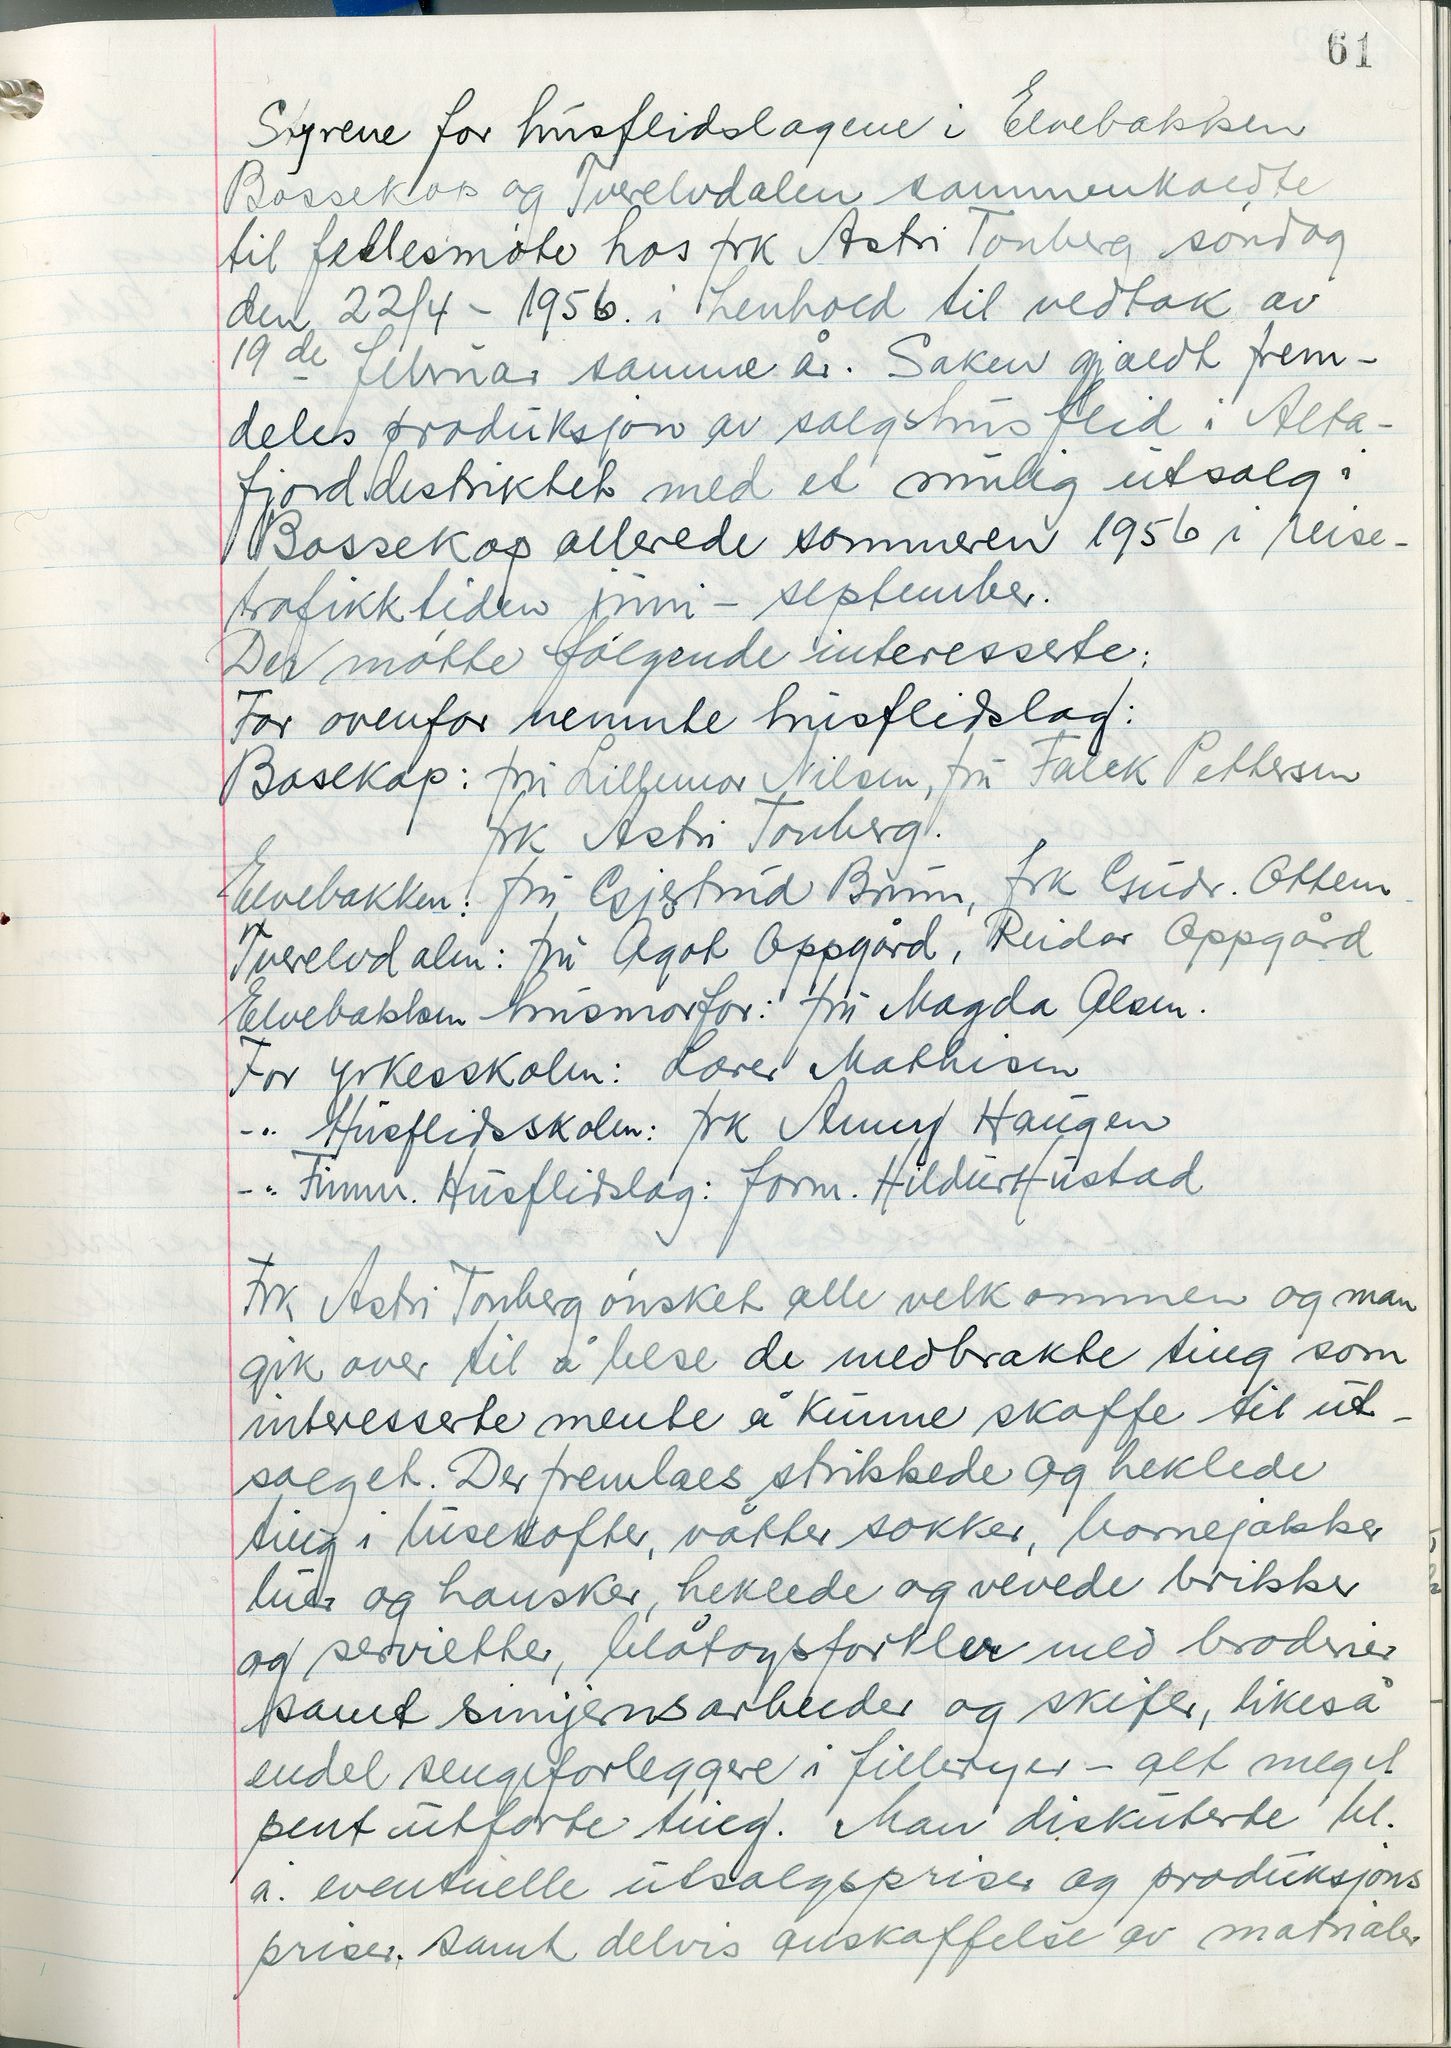 61
Styrene for husflidslagene i Elvebakken
Bossekop og Tverelvdalen sammenkaldte
til fellesmøte hos frk Astri Tonberg søndag
den 22/4 - 1956. i henhold til vedtak av
19de februar samme år. Saken gjaldt frem-
deles produksjon av salgshusflid i Alta-
fjord.distriktet med et mulig utsalg i
Bossekop allerede sommeren 1956 i reise-
trafikktiden juni - september.
Der møtte følgende interesserte:
For ovenfor nevnte husflidslag:
Bosekop: fru Lillemor Nilsen, fru Falck Pettersen
frk Astri Tonberg.
Elvebakken: fru Gjertrud Bruun, frk Gudr. Ottem
Tverelvdalen: fru Agot Oppgård, Reidar Oppgård
Elvebakken husmorfor: fru Magda Olsen.
For yrkesskolen: Lærer Mathisen
-"- Husflidsskolen: frk Anny Haugen
-"- Finnm. Husflidslag: form. Hildur Hustad
Frk Astri Tonberg ønsket alle velkommen og man
gik over til å bese de medbrakte ting som
interesserte mente å kunne skaffe til ut-
salget. Der fremlaes strikkede og heklede
ting i lusekofter, våtter sokker, barnejakker
luer og hansker, heklede og vevede brikker
og servietter, blåtøysforklær med broderier
samt smijernsarbeider og skifer, likeså
endel sengeforleggere i filleryer - alt meget
pent utførte ting. Man diskuterte bl.
a. eventuelle utsalgspriser og produksjons
priser. samt delvis anskaffelse av matrialer